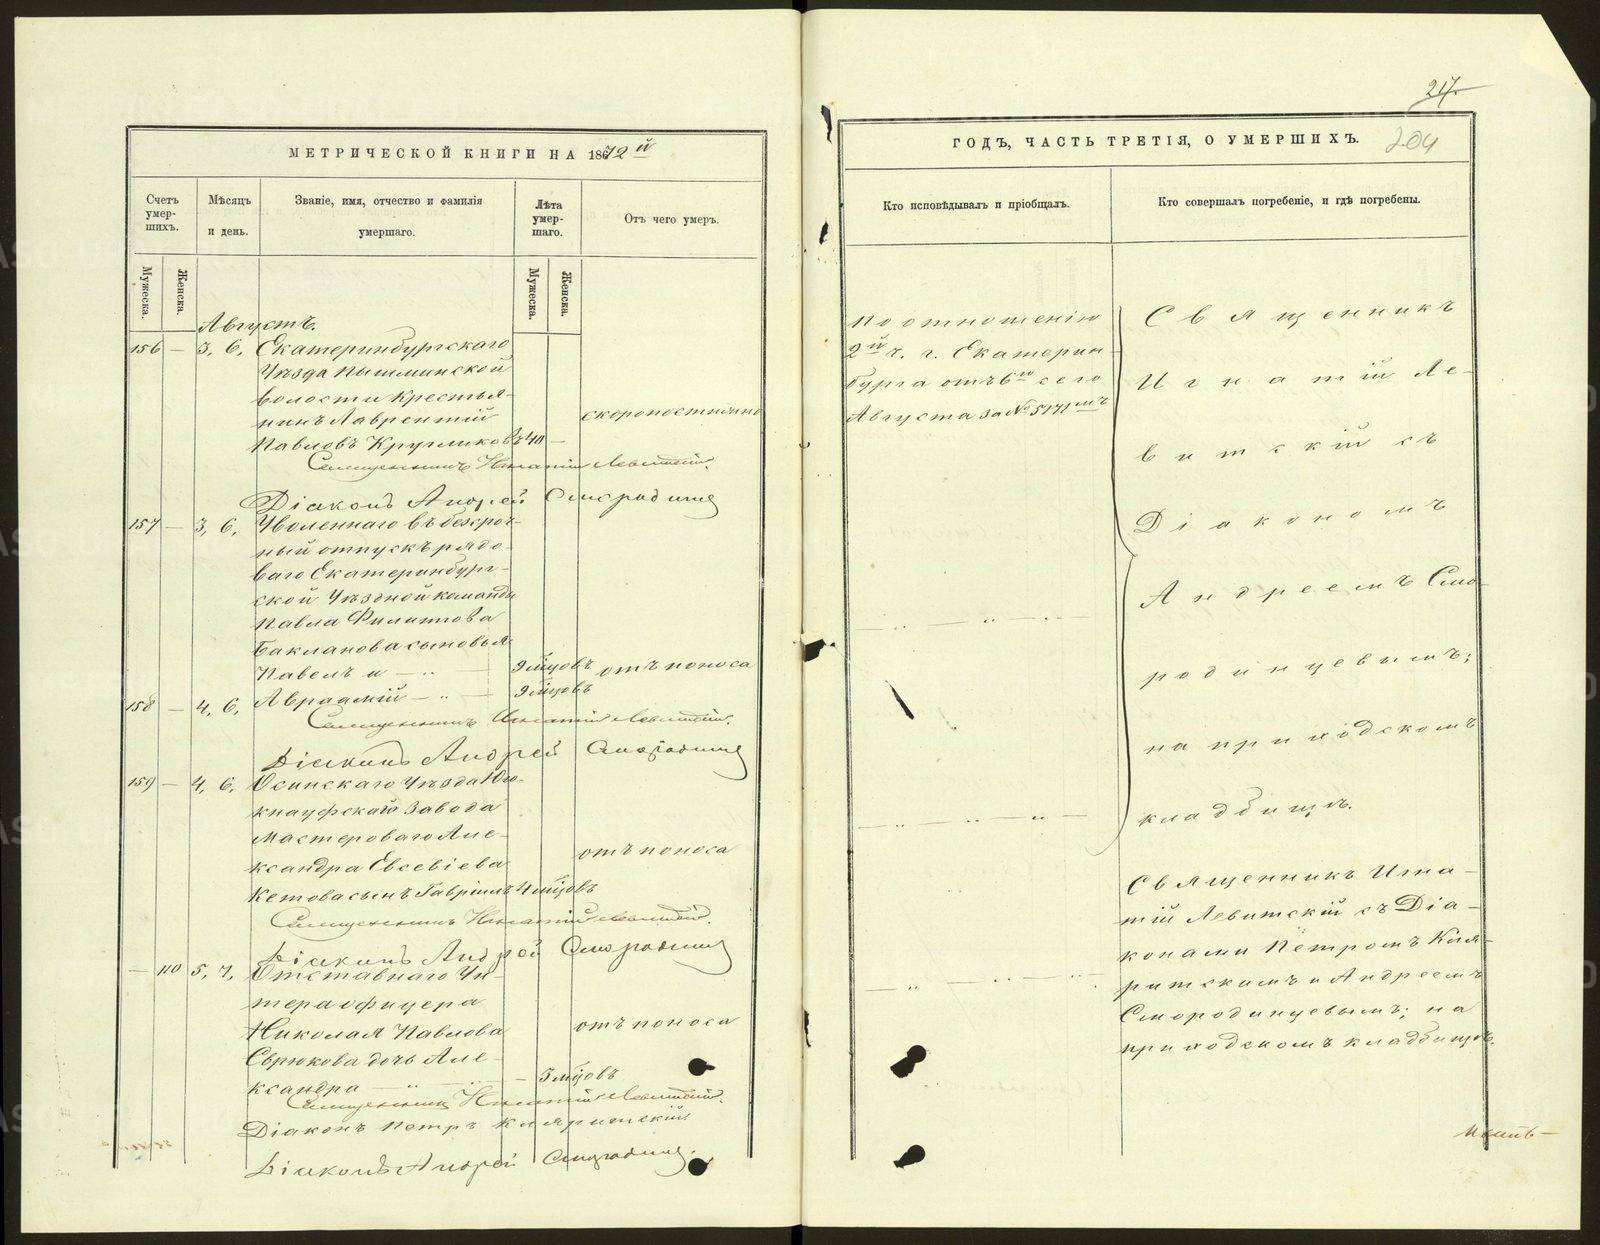 МЕТРИЧЕСКОЙ КНИГИ НА 1872й
Счетъ умер-шихъ.
Мѣсяцъ и день.
Званіе, имя, отчество и фамилія умершаго.
Лѣта умер-шаго.
Отъ чего умеръ.
Мужеска.
Женска.
Мужеска.
Женска.
Августъ.
156 — 3, 6, Екатеринбургскаго
Уѣзда Пышминской
волости крестья-
нинъ Лаврентій
скоропостижно
Павловъ Кругликовъ 40 —
Священникъ Игнатій Левитскій.
Діаконъ Андрей Смородинц
157 — 3, 6, Уволеннаго въ безсроч-
ный отпускъ рядо-
ваго Екатеринбург-
ской Уѣздной команды
Павла Филиппова
Бакланова сыновья
Павелъ и — „ 9 мцовъ отъ поноса
158 — 4, 6, Авраамій — „ — 9 мцовъ
Священникъ Игнатій Левитскій.
Діаконъ Андрей Смородинц
159 — 4, 6, Осинскаго Уѣзда Юго-
кнауфскаго завода
мастероваго Але-
ксандра Евсевіева
отъ поноса
Кетова сынъ Гавріилъ 4 мцовъ
Священникъ Игнатій Левитскій.
Діаконъ Андрей Смородинц
— 110 5, 7, Отставнаго Ун-
тера офицера
Николая Павлова
отъ поноса
Сврюкова дочь Але-
ксандра — „ — 3 мцовъ
Священникъ Игнатій Левитскій.
Діаконъ Петръ Кляритскій
Діаконъ Андрей Смородинц.
217.
ГОДЪ, ЧАСТЬ ТРЕТІЯ, О УМЕРШИХЪ.
204
Кто исповѣдывалъ и пріобщалъ.
Кто совершалъ погребеніе, и гдѣ погребены.
По отношенію
2й ч. г. Екатерин-
бурга отъ 6го сего
Августа за №
Священникъ
Игнатій Ле-
витскій съ
Діакономъ
Андреемъ Смо-
родинцевымъ;
на приходскомъ
кладбищѣ.
Священникъ Игна-
тій Левитскій съ Діа-
конами Петромъ Кля-
ритскимъ и Андреемъ
Смородинцевымъ; на
приходскомъ кладбищѣ.